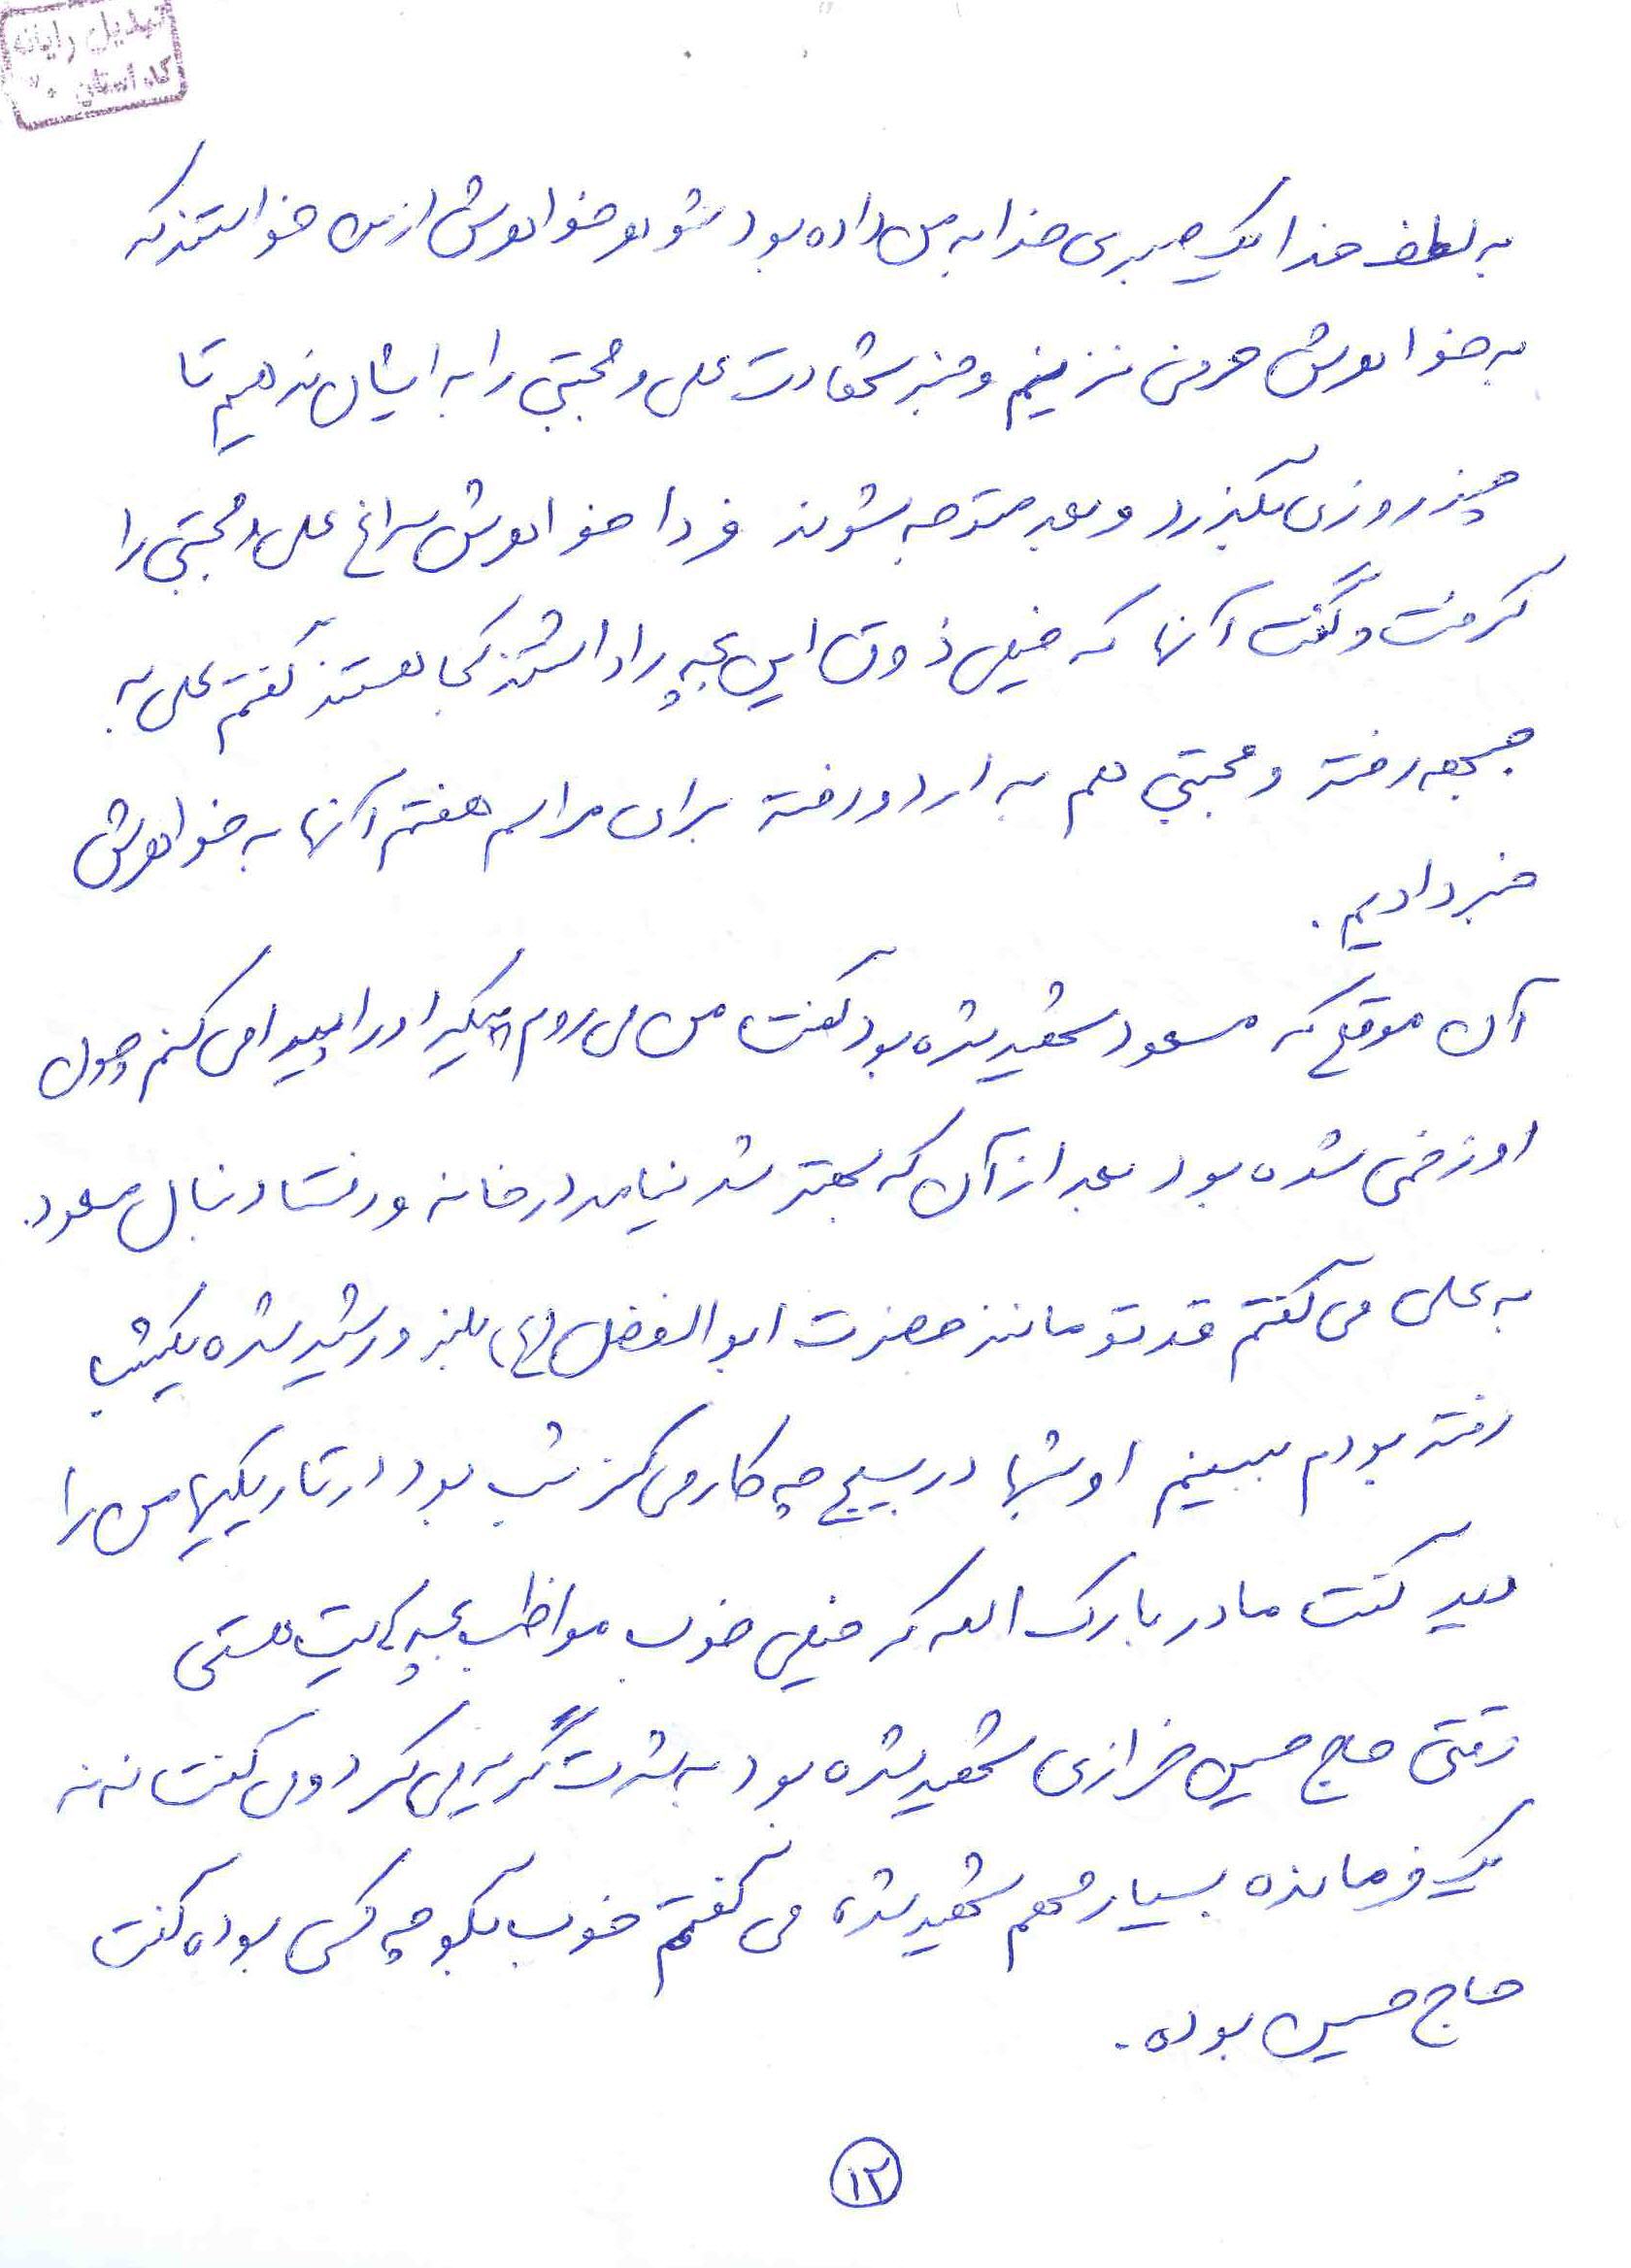 تبدیل رایانه
کد استان ۲۰
به لطف خدا یک صبری خدا به من داده بود شوهر خواهرش از من خواستند که
به خواهرش حرفی نزنیم و خبر شهادت علی و مجتبی را به ایشان ندهیم تا
چند روزی بگذرد و بعد متوجه بشوند فردا خواهرش سراغ علی و مجتبی را
گرفت و گفت آنها که خیلی ذوق این بچه را داشتند کجا هستند گفتم علی به
جبهه رفته و مجتبی هم به اردو رفته برای مراسم هفتم آنها به خواهرش
خبر دادیم.
آن موقع که مسعود شهید شده بود گفت من می روم پیکر او را پیدا می کنم چون
او زخمی شده بود بعد از آن که بهتر شد نیامد در خانه و رفت دنبال مسعود.
به علی می گفتم قد تو مانند حضرت ابوالفضل (ع) بلند و رشید شده یکشب
رفته بودم ببینم او شبها در بسیج چه کار می کند شب بود در تاریکیها من را
دید گفت مادر بارک اله که خیلی خوب مواظب بچه هایت هستی
وقتی حاج حسین خرازی شهید شده بود به شدت گریه می کرد و می گفت ننه
یک فرمانده بسیار مهم شهید شده می گفتم خوب بگو چه کسی بوده گفت
حاج حسین بوده.
۱۲